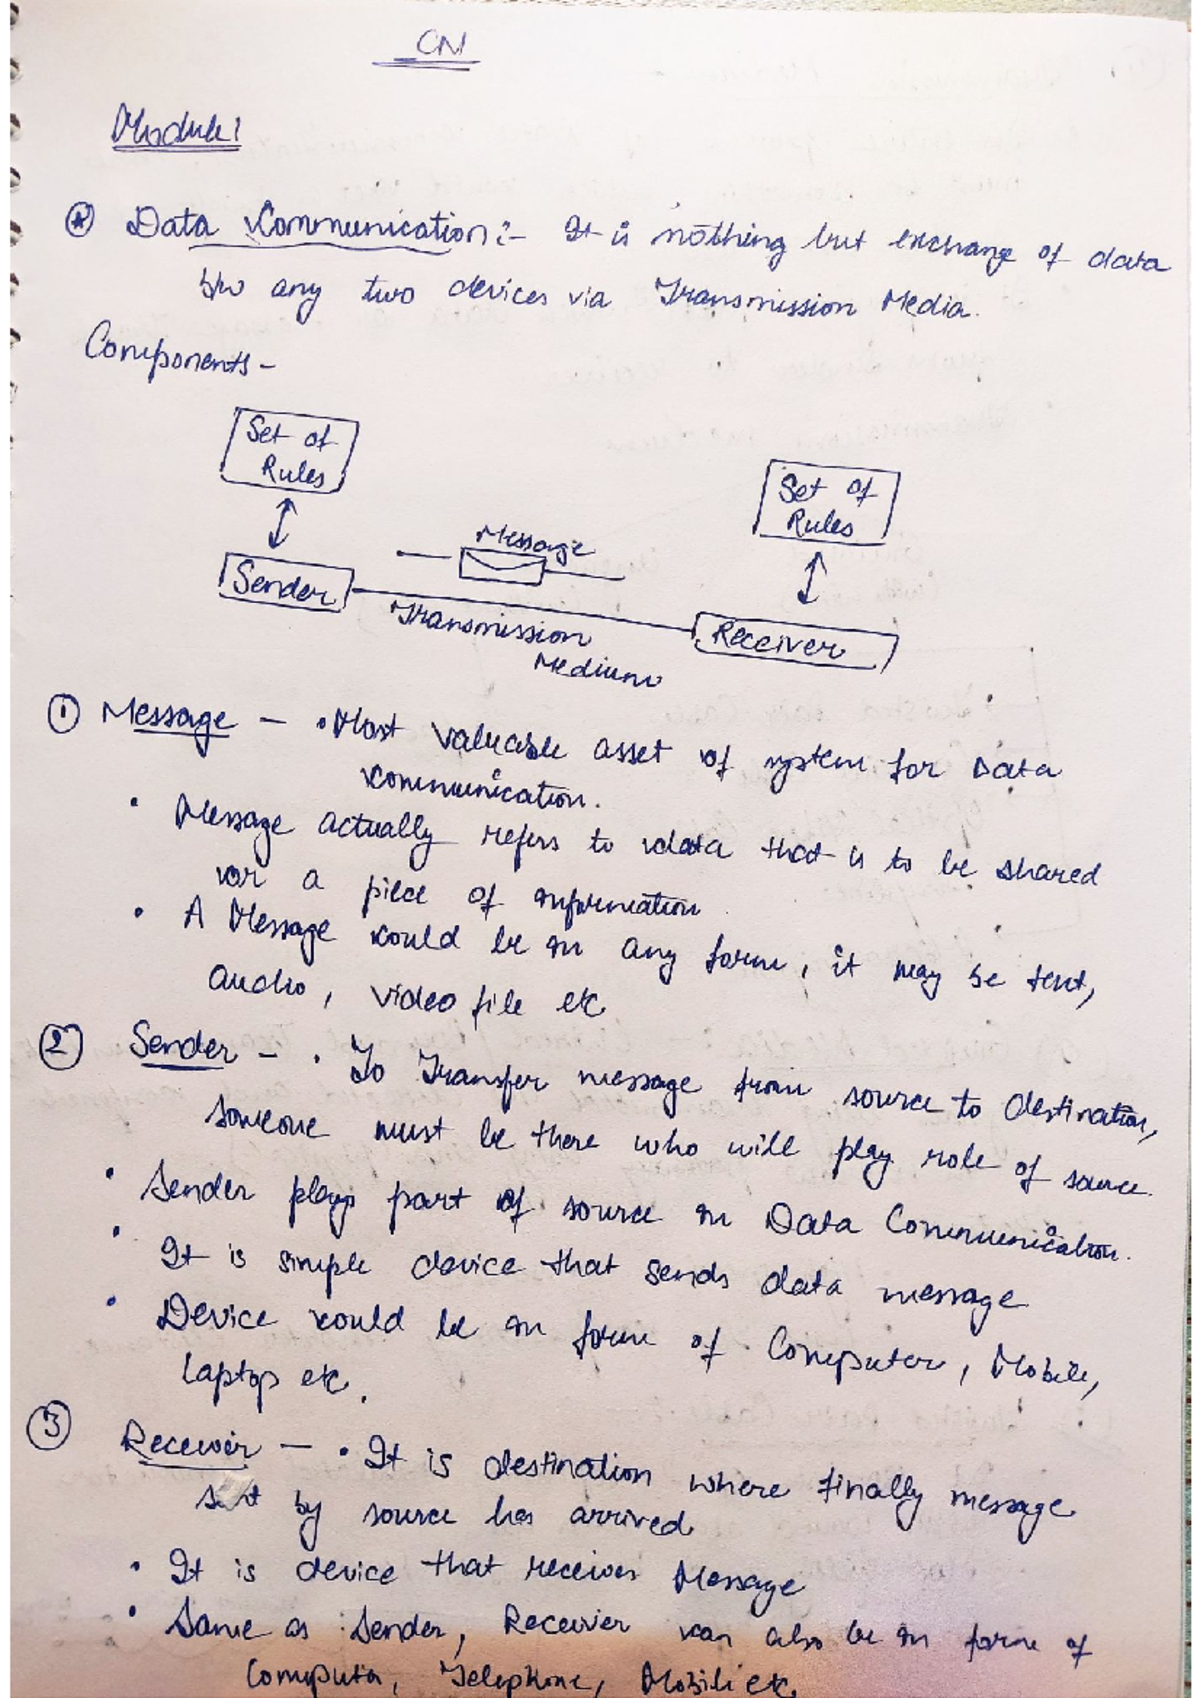 CN
Module 1
* Data Communication :- It is nothing but exchange of data
b/w any two devices via Transmission Media.
Components -
Set of
Rules
Set of
Rules
Message
Sender
Transmission
Medium
Receiver
① Message - • Most valuable asset of system for Data
Communication.
• Message actually refers to data that is to be shared
or a piece of information
• A Message could be in any form, it may be text,
audio, video file etc
② Sender - • To Transfer message from source to destination,
someone must be there who will play role of source.
• Sender plays part of source in Data Communication.
• It is simple device that sends data message
• Device could be in form of Computer, Mobile,
laptop etc.
③ Receiver - • It is destination where finally message
sent by source has arrived
• It is device that receives Message
• Same as Sender, Receiver can also be in form of
Computer, Telephone, Mobile etc.